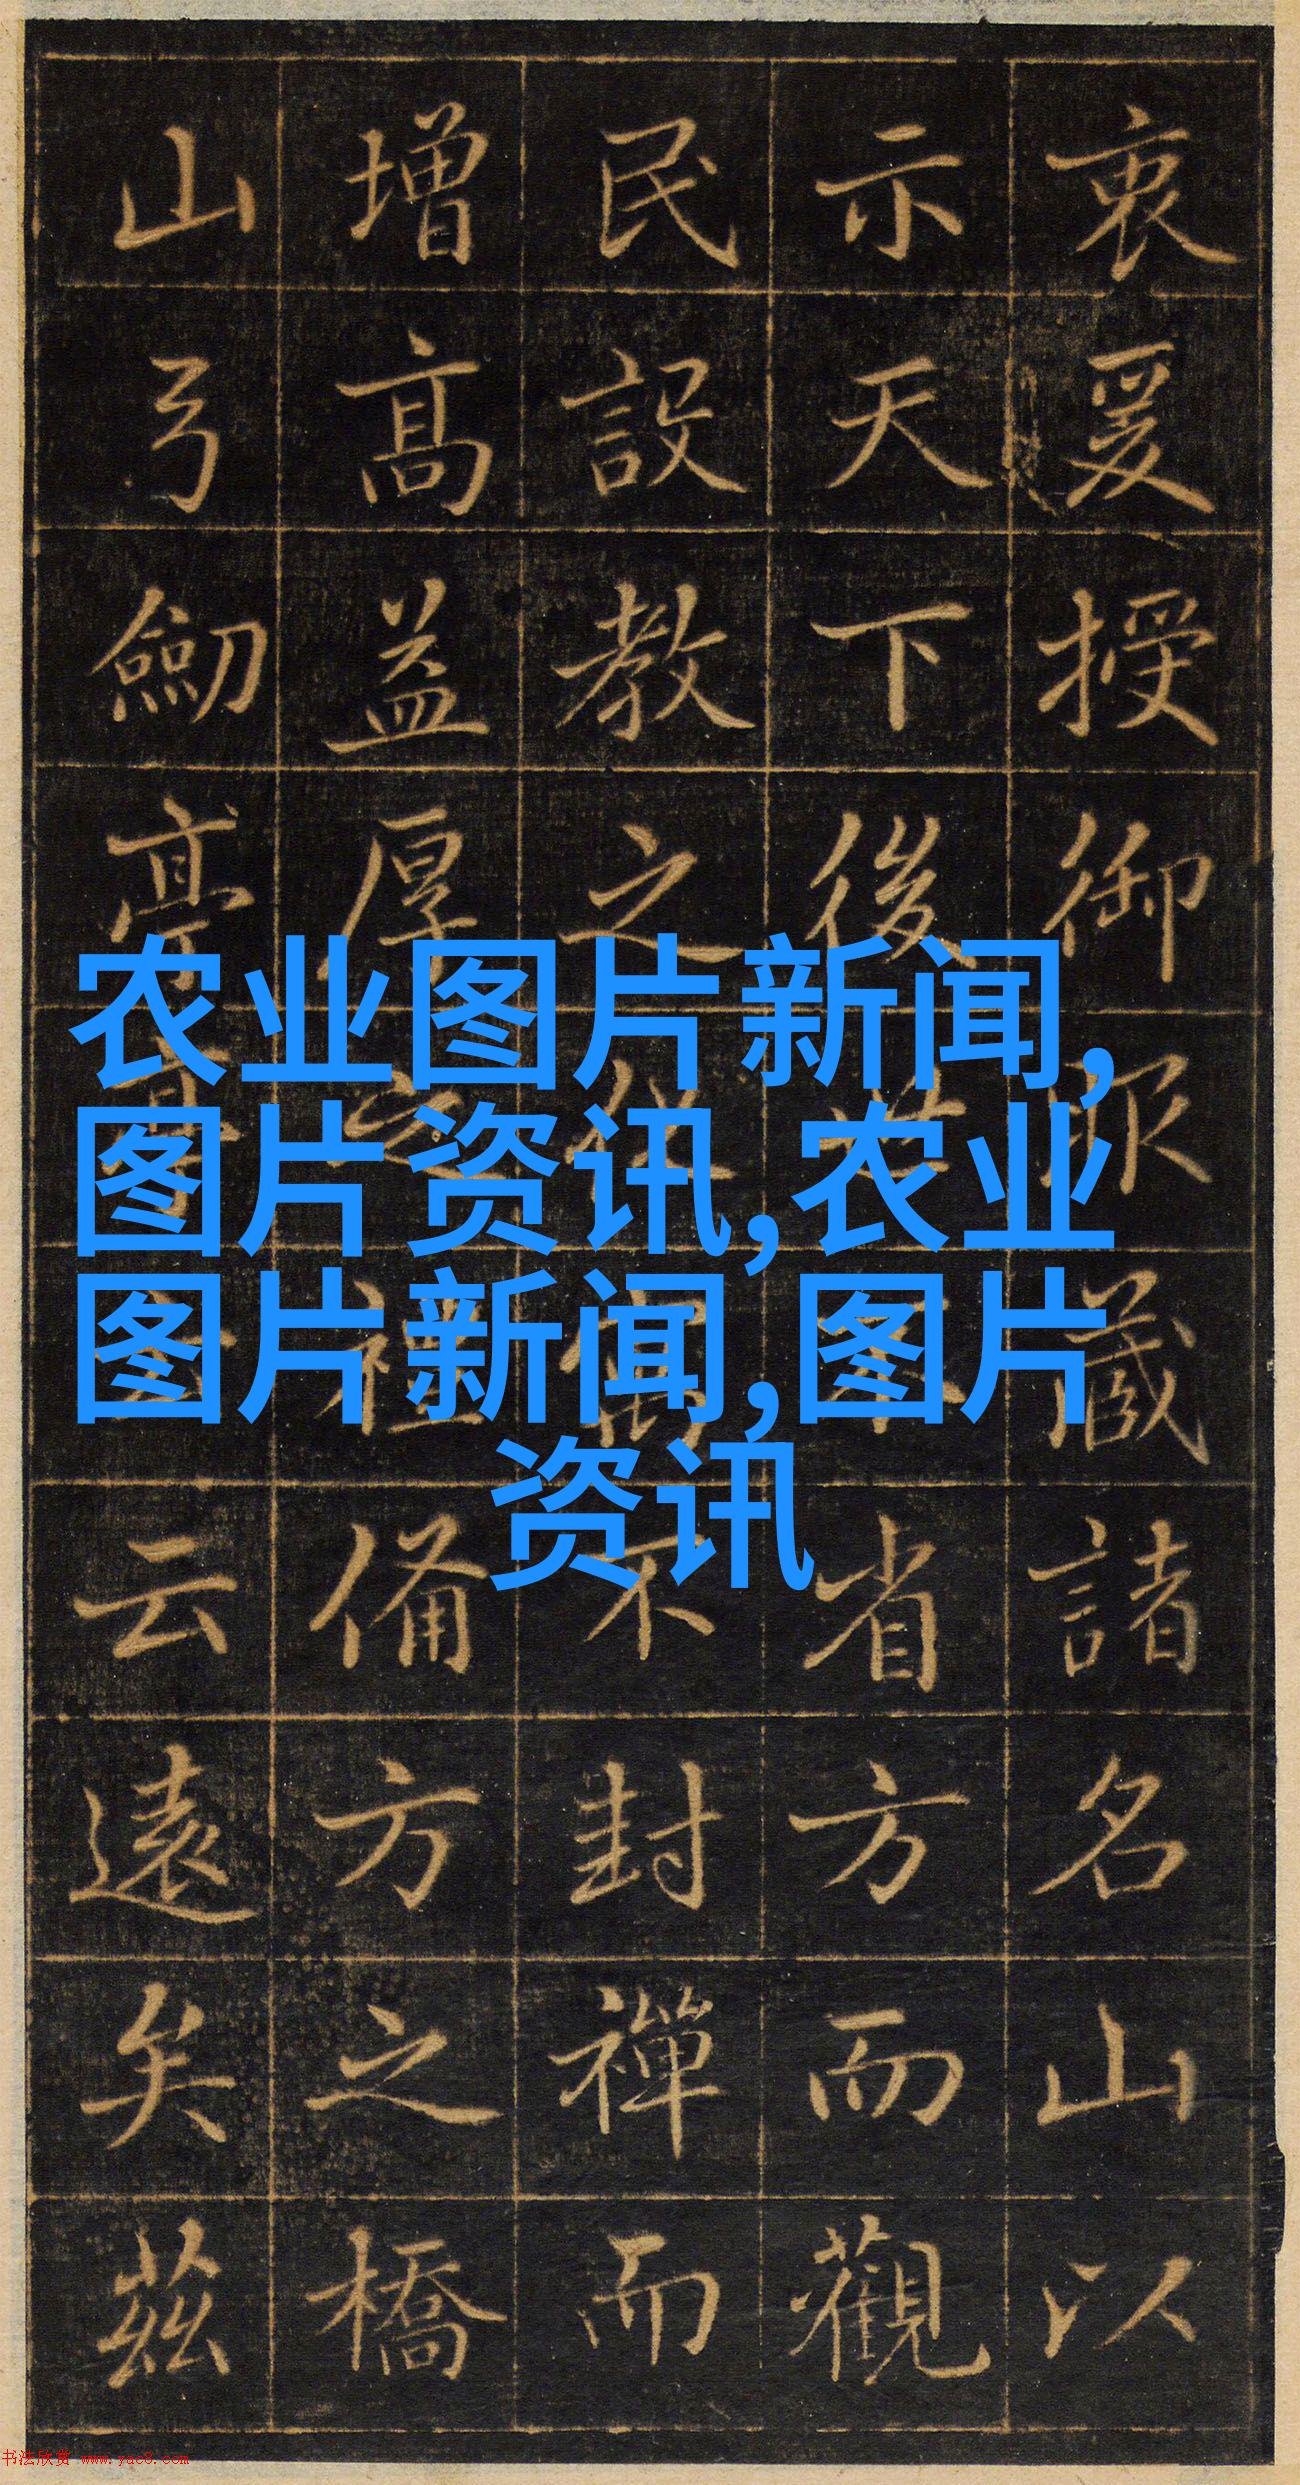 衷爰授御服藏諸名山以
示天下後省方而觀
民設教之不封禪而
增高益厚之禮備方之橋
山弓劒亭云遠矣茲
农业图片新闻,
图片资讯,农业
图片新闻,图片
资讯
书法欣赏 www.yac8.com